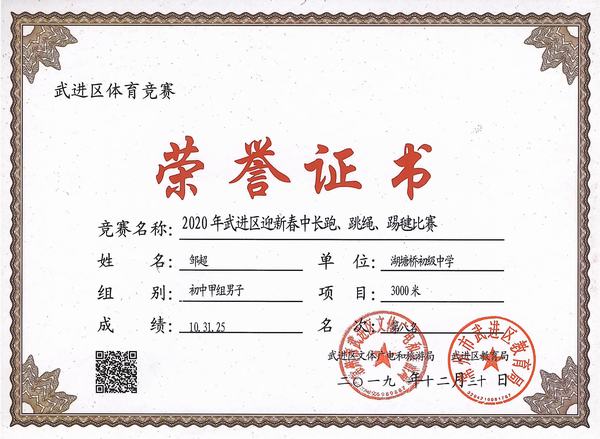 武进区体育竞赛
荣誉证书
竞赛名称: 2020年武进区迎新春中长跑、跳绳、踢毽比赛
姓 名: 邹超 单 位: 湖塘桥初级中学
组 别: 初中甲组男子 项 目: 3000米
成 绩: 10.31.25 名 次: 第八名
武进区文体广电和旅游局 武进区教育局
二〇一九 年十二月三十 日
常州市武进区教育局